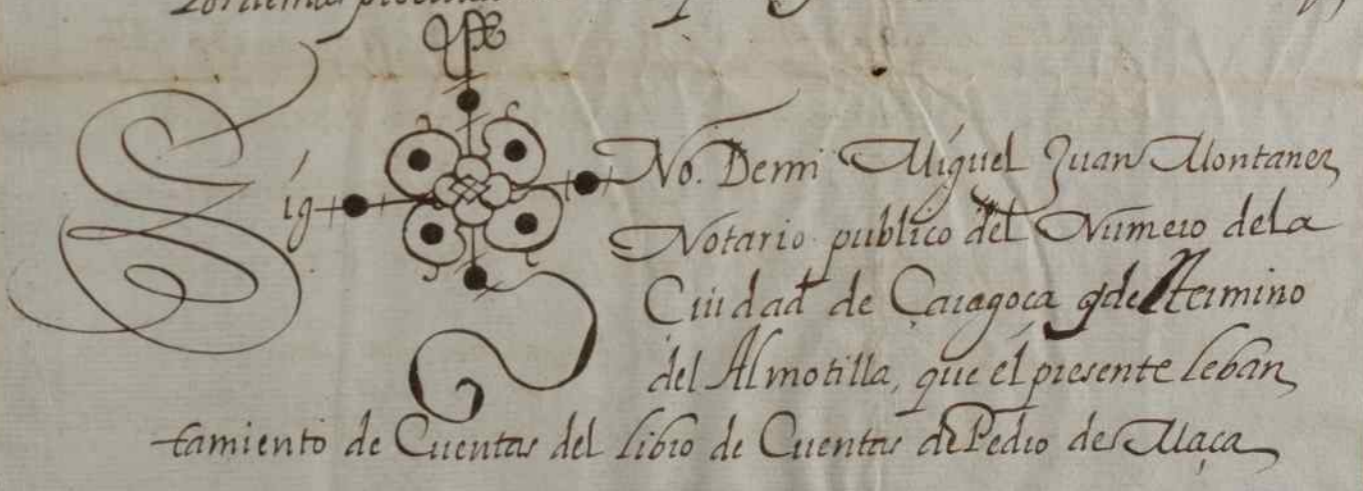 Sig No. Demi Miguel Juan Montanez
Notario publico del Numero dela
Ciudad de Çaragoça y del termino
del Almotilla, que él presente leban
tamiento de Cuentas del Libro de Cuentas de Pedro de Maça